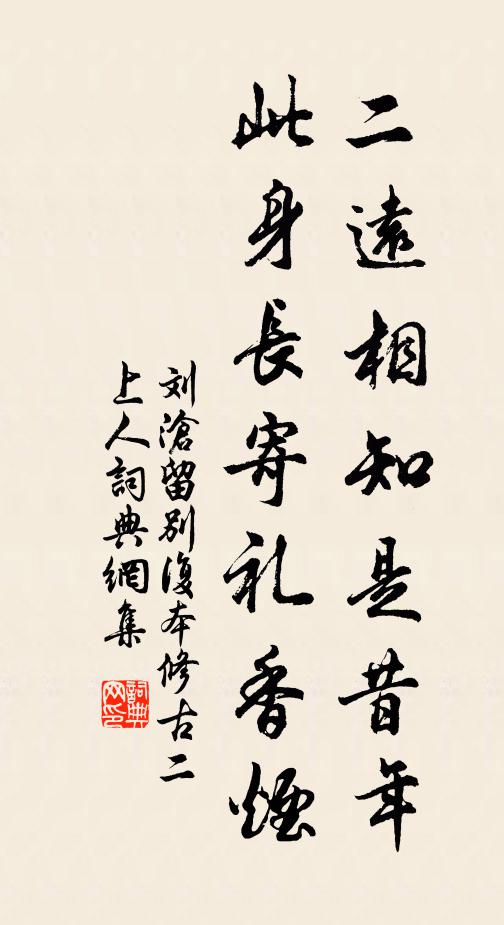 二遠相知是昔年
此身長寄礼香煙
刘滄留别復本修古二
上人詞典網集
詞典网印